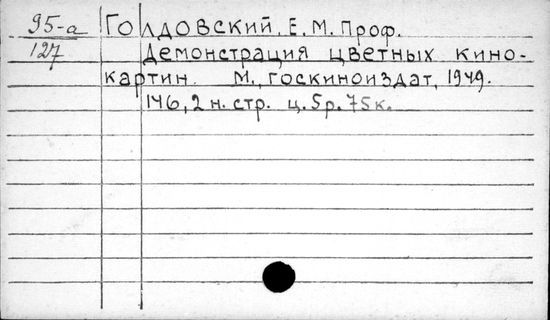 95-а
127
Голдовский, Е. М. Проф.
Демонстрация цветных кино-
картин. М., Госкиноиздат, 1949.
146, 2 н. стр. ц. 5р. 75к.